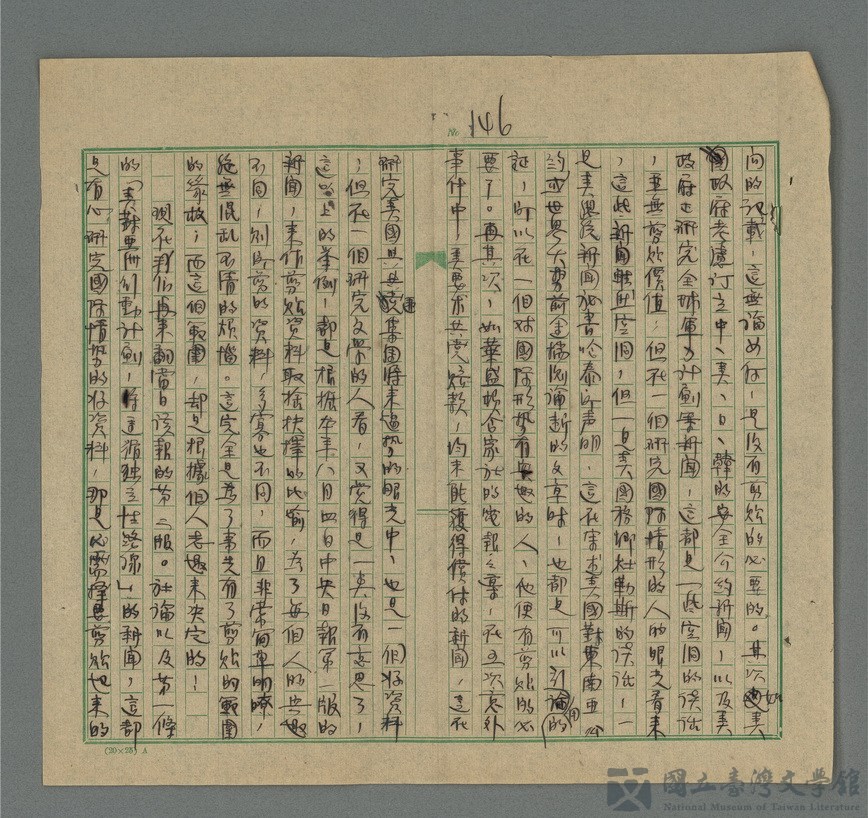 No 146
向的記載,這無論如何,是沒有剪貼的必要的。其次如美
國政府考慮訂立中、美、日、韓的安全公約新聞,以及美
政府已研究全球軍力計劃等新聞,這都是一些空洞的談話
,並無剪貼價值,但在一個研究國際情形的人的眼光看來
,這些新聞雖然空洞,但一是美國務卿杜勒斯的談話,一
是美總統新聞秘書哈泰的聲明,這在寫述美國對東南亞公
約或世界大勢前途論斷的文章時,也都是可以引用的
証,所以在一個對國際形勢有興趣的人,他便有剪貼的必
要了。再其次,如華盛頓合眾社的電報之事,在五次意外
事件中,美要求共黨賠款,均未能獲得償付的新聞,這在
研究美國與共黨集團將來趨勢的眼光中,也是一個好資料
,但在一個研究文學的人看,又覺得是一美沒有意思了,
這以上的舉例,都是根據本年八月四日中央日報第一版的
新聞,來作剪貼資料取捨抉擇的比喻,為了每個人的興趣
不同,則所剪的資料,多寡也不同,而且非常簡單明瞭,
絕無混亂不清的煩惱。這完全是為了事先有了剪貼的範圍
的緣故,而這個範圍,却是根據個人志趣來決定的!
現在我們再來翻當日該報的第二版。社論以及第一條
的「美對亞洲行動計劃,將遵循獨立性路線」的新聞,這都
是有心研究國際情勢的好資料,那是必需擇要剪貼起來的
(20×25) A
國立臺灣文學館
National Museum of Taiwan Literature